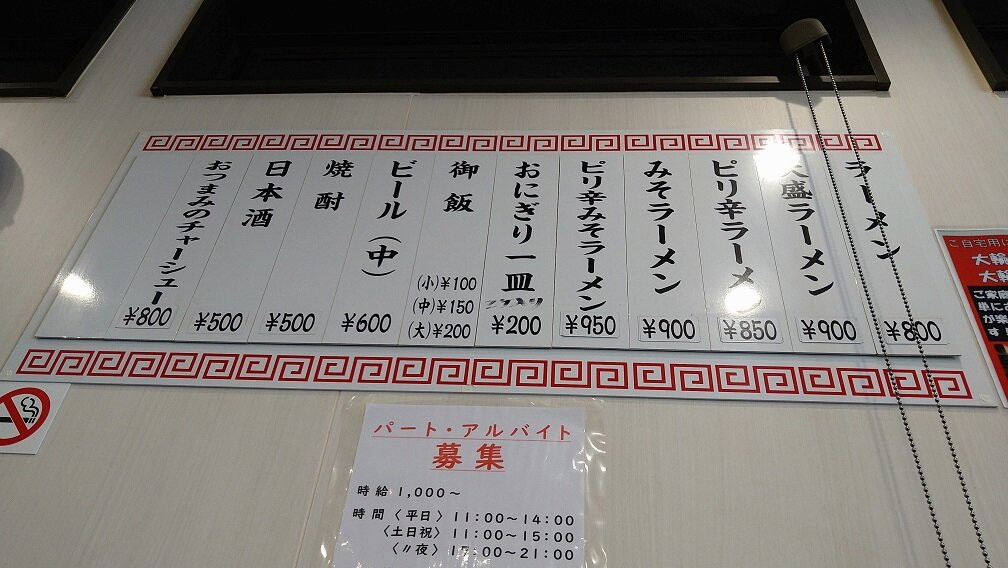 ラーメン
¥800
大盛ラーメン
¥900
ピリ辛ラーメン
¥850
みそラーメン
¥900
ピリ辛みそラーメン
¥950
おにぎり一皿
¥200
御飯
(小)¥100
(中)¥150
(大)¥200
ビール(中)
¥600
焼酎
¥500
日本酒
¥500
おつまみのチャーシュー
¥800
パート・アルバイト
募集
時給 1,000～
時間〈平日〉11:00～14:00
〈土日祝〉11:00～15:00
〈〃夜〉17:00～21:00
ご自宅用に
大輪
大輪
ご家庭
単に
が楽
す